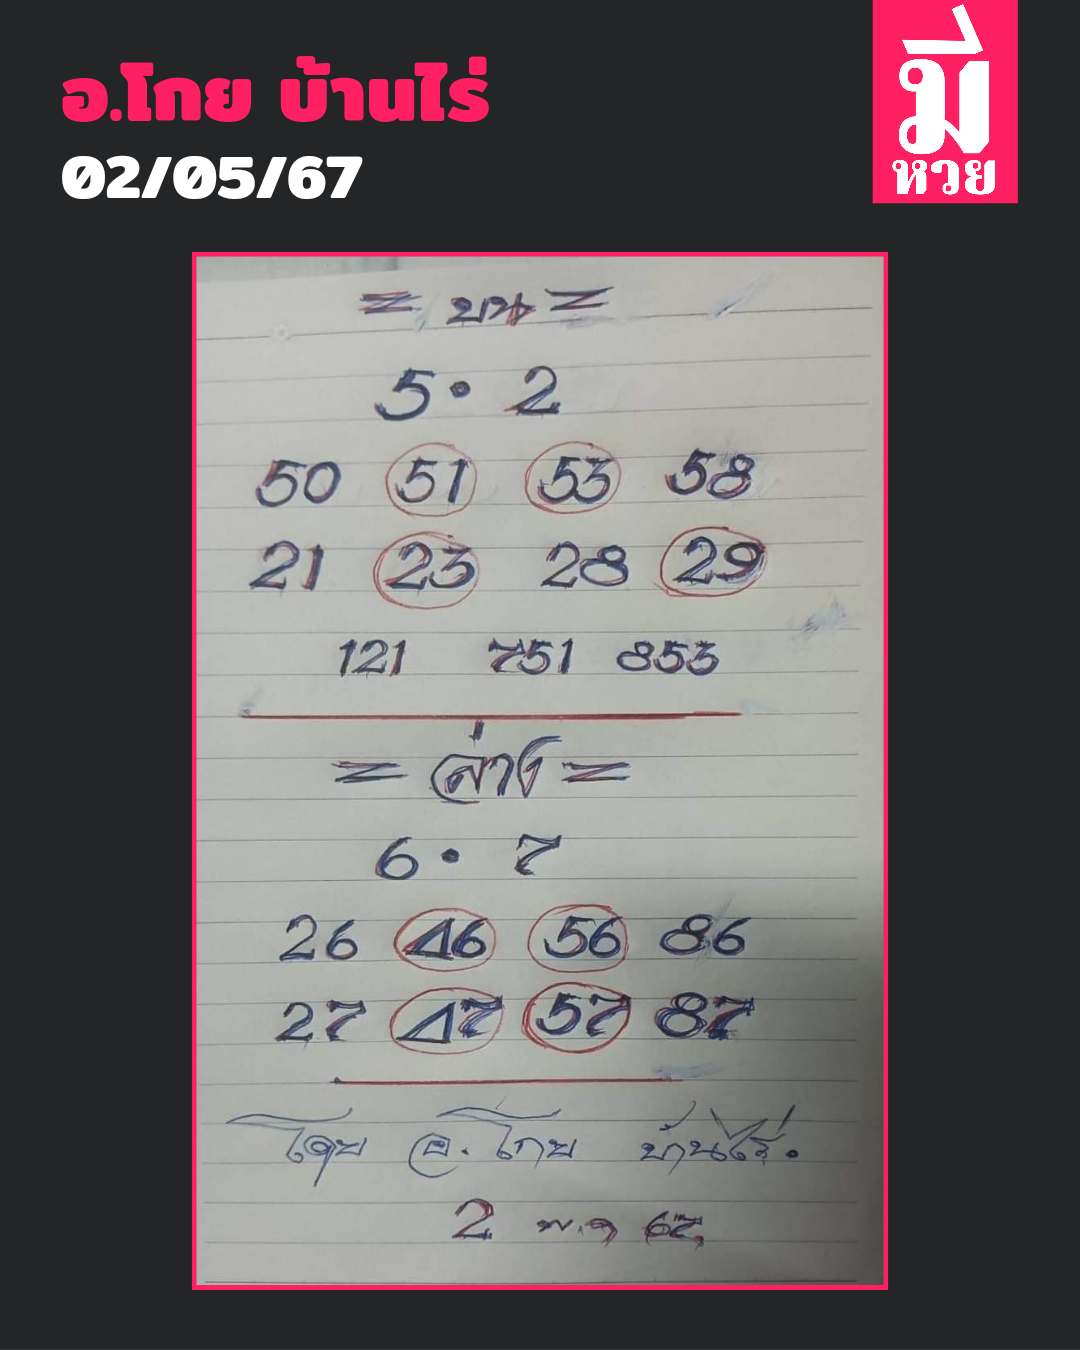 อ.โกย บ้านไร่
02/05/67
มี
หวย
= บน =
5 • 2
50 51 53 58
21 23 28 29
121 751 853
= ล่าง =
6 • 7
26 46 56 86
27 47 57 87
โดย อ. โกย บ้านไร่.
2 พ.ค 67